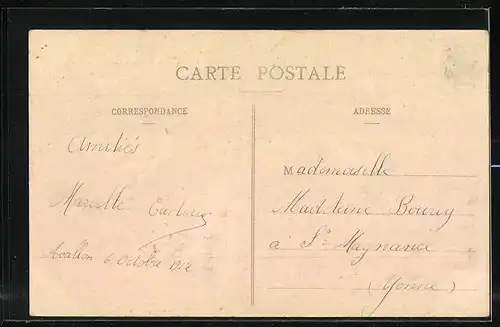 CARTE POSTALE
CORRESPONDANCE
ADRESSE
Amitiés
Mademoiselle
Marcelle
Madeleine Bourey
à St Magnance
Avallon 6 Octobre 1912
(Yonne)